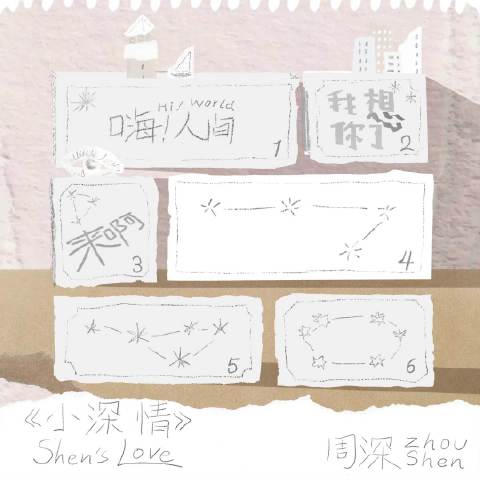 Hi! World
嗨!人间
1
我想
你了
2
来啊
3
4
5
6
《小深情》
Shen's Love
周深 zhou
Shen